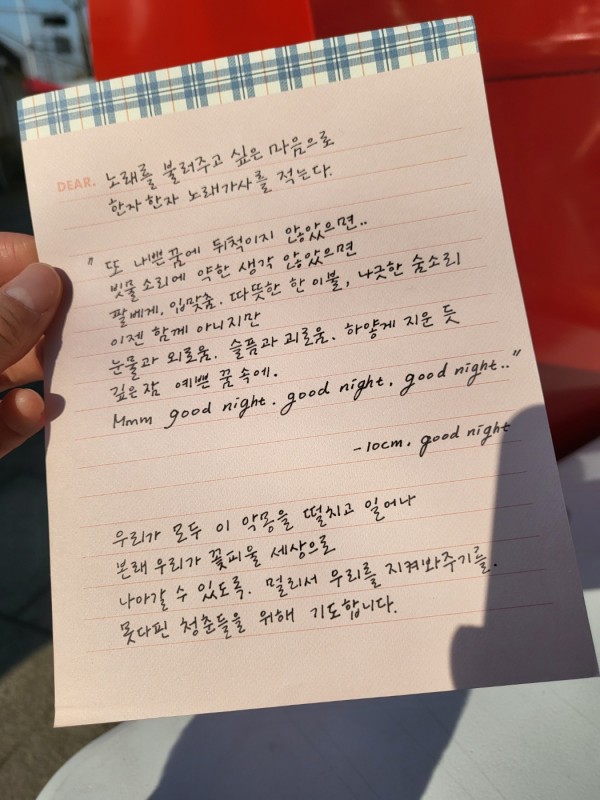 DEAR. 노래를 불러주고 싶은 마음으로
한자 한자 노래가사를 적는다.
" 또 나쁜 꿈에 뒤척이지 않았으면..
빗물 소리에 약한 생각 않았으면
팔베게. 입맞춤. 따뜻한 한 이불, 나긋한 숨소리
이젠 함께 아니지만
눈물과 외로움. 슬픔과 괴로움. 하얗게 지운 듯
깊은 잠 예쁜 꿈 속에.
Mmm good night. good night. good night.."
-10cm. good night
우리가 모두 이 악몽을 떨치고 일어나
본래 우리가 꽃피울 세상으로
나아갈 수 있도록. 멀리서 우리를 지켜봐주기를.
못다핀 청춘들을 위해 기도합니다.